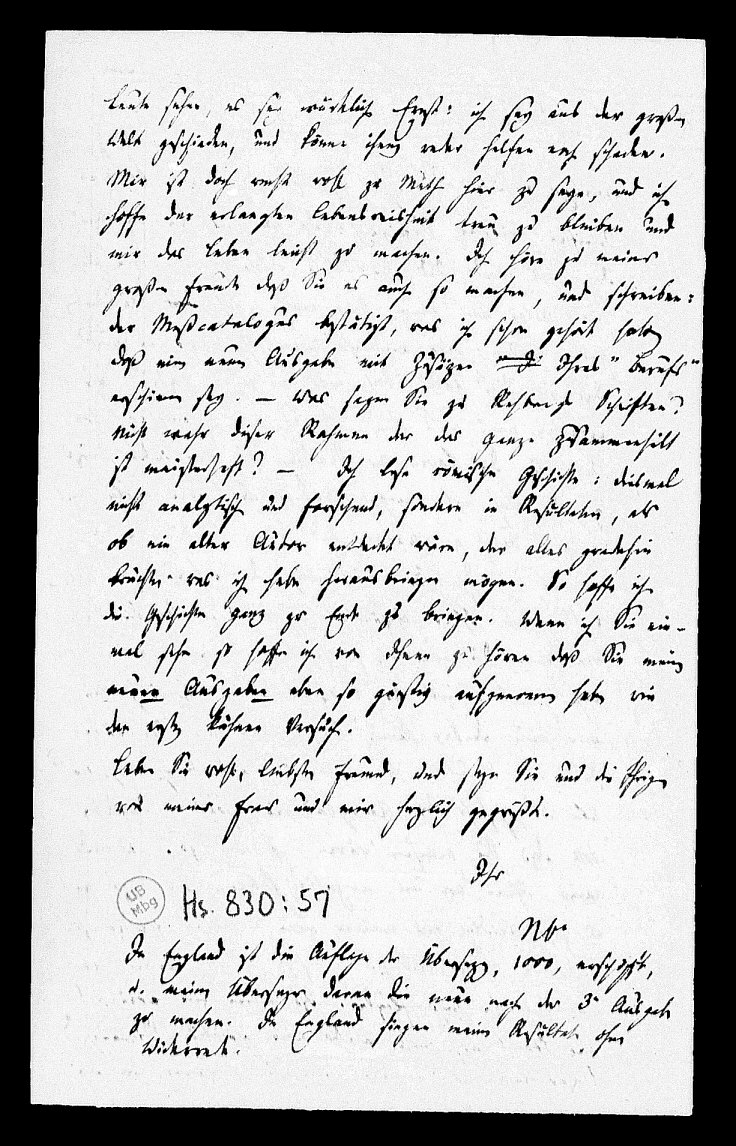 Leute sehen, es sey würklich Ernst: ich sey aus der großen
Welt geschieden, und könne ihnen weder helfen noch schaden.
Mir ist doch recht wohl zu Muth hier zu seyn, und ich
hoffe der erlangten Lebensweisheit treu zu bleiben und
mir das Leben leicht zu machen. Ich höre zu meiner
großen Freude daß Sie es auch so machen, und schreiben:
der Meßcatalogus bestätigt, was ich schon gehört hatte
daß eine neue Ausgabe mit Zusäzen Ihres "Berufs"
erschienen sey. — Was sagen Sie zu Rehbergs Schriften?
Nicht wahr dieser Rahmen der das ganze zusammenhält
ist meisterhaft? — Ich lese römische Geschichte: diesmal
nicht analytisch und forschend, sondern in Resultaten, als
ob ein alter Autor entdeckt wäre, der alles gradehin
brächte was ich habe herausbringen mögen. So hoffe ich
die Geschichte ganz zu Ende zu bringen. Wenn ich Sie ein-
mal sehe so hoffe ich von Ihnen zu hören daß Sie meine
neuen Ausgaben eben so günstig aufgenommen haben wie
den ersten kühnen Versuch.
Leben Sie wohl, liebster Freund, und seyn Sie und die Ihrigen
von meiner Frau und mir herzlich gegrüßt.
Ihr
UB
Mbg
Hs. 830:57
Nbr
In England ist die Auflage der Übersezg, 1000, erschöpft,
u. meine Übersezer daran die neue nach der 3n Ausgabe
zu machen. In England siegen meine Resultate ohne
Widerrede.